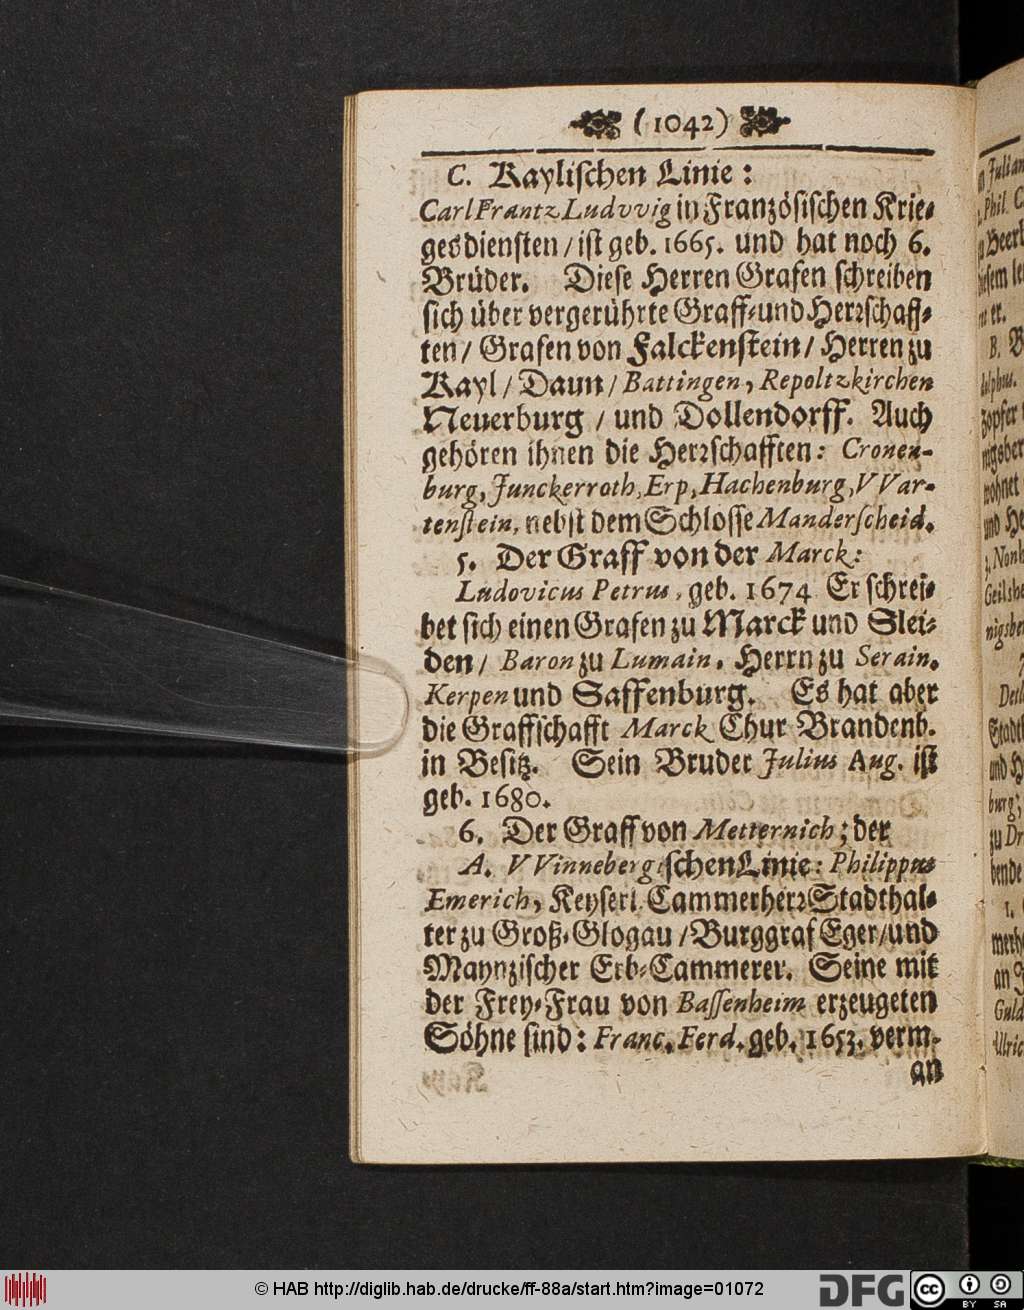 (1042)
C. Kaylischen Linie:
Carl Frantz Ludvvig in Französischen Krie-
gesdiensten / ist geb. 1665. und hat noch 6.
Brüder. Diese Herren Grafen schreiben
sich über vergerührte Graff-und Herrschaff-
ten / Grafen von Falckenstein / Herren zu
Kayl / Daun / Battingen, Repoltzkirchen
Neuerburg / und Dollendorff. Auch
gehören ihnen die Herrschafften: Cronen-
burg, Junckerroth, Erp, Hachenburg, VVar-
tenstein, nebst dem Schlosse Manderscheid.
5. Der Graff von der Marck:
Ludovicus Petrus, geb. 1674 Er schrei-
bet sich einen Grafen zu Marck und Slei-
den / Baron zu Lumain. Herrn zu Serain.
Kerpen und Saffenburg. Es hat aber
die Graffschafft Marck Chur Brandenb.
in Besitz. Sein Bruder Julius Aug. ist
geb. 1680.
6. Der Graff von Metternich; der
A. VVinnebergischen Linie: Philippus
Emerich, Keyserl. Cammerherr Stadthal-
ter zu Groß-Glogau / Burggraf Eger / und
Maynzischer Erb-Cammerer. Seine mit
der Frey-Frau von Bassenheim erzeugeten
Söhne sind: Franc. Ferd. geb. 1653. verm.
an
Julian
Phil. C
B.
zopfer
wohnet
Geilshe
burg;
zu Dr
bende
1.
an
Guld
Ulric
© HAB http://diglib.hab.de/drucke/ff-88a/start.htm?image=01072
DFG
cc BY SA